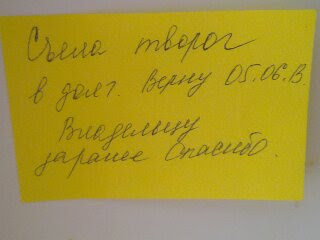 Съела творог
в долг. Верну 05.06.В.
Владельцу
заранее Спасибо.